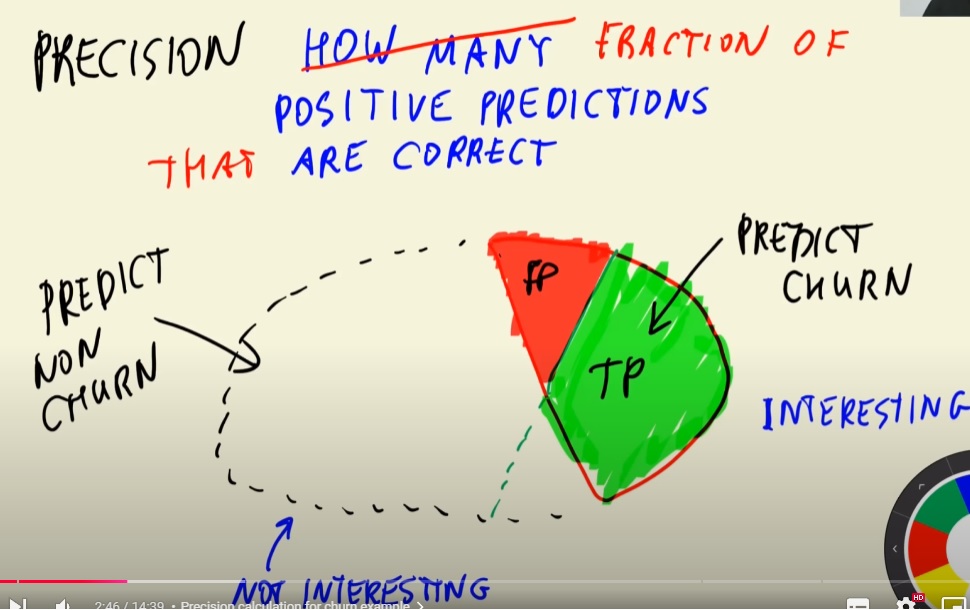 PRECISION HOW MANY FRACTION OF
POSITIVE PREDICTIONS
THAT ARE CORRECT
PREDICT
NON
CHURN
FP
TP
PREDICT
CHURN
INTERESTING
NOT INTERESTING
2:46 / 14:39 • Precision calculation for churn example
HD